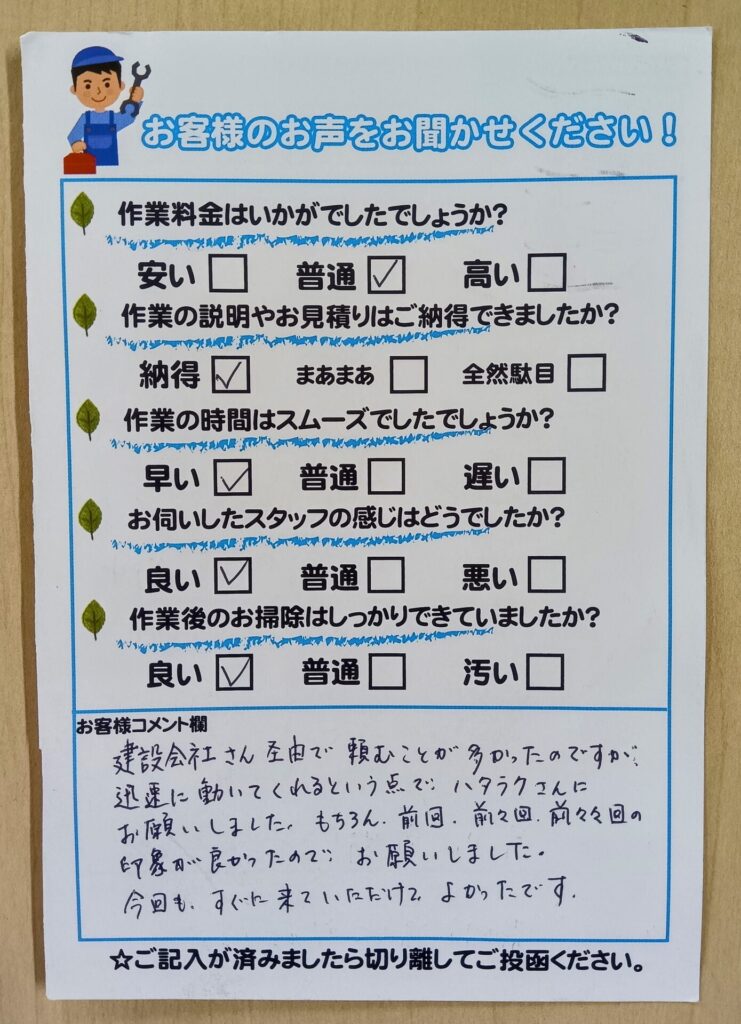 お客様のお声をお聞かせください！
作業料金はいかがでしたでしょうか?
安い □ 普通 ☑ 高い □
作業の説明やお見積りはご納得できましたか?
納得 ☑ まあまあ □ 全然駄目 □
作業の時間はスムーズでしたでしょうか?
早い ☑ 普通 □ 遅い □
お伺いしたスタッフの感じはどうでしたか?
良い ☑ 普通 □ 悪い □
作業後のお掃除はしっかりできていましたか?
良い ☑ 普通 □ 汚い □
お客様コメント欄
建設会社さん経由で頼むことが多かったのですが、
迅速に動いてくれるという点で、ハタラクさんに
お願いしました。もちろん、前回、前々回、前々々回の
印象が良かったので、お願いしました。
今回も、すぐに来ていただけてよかったです。
☆ご記入が済みましたら切り離してご投函ください。